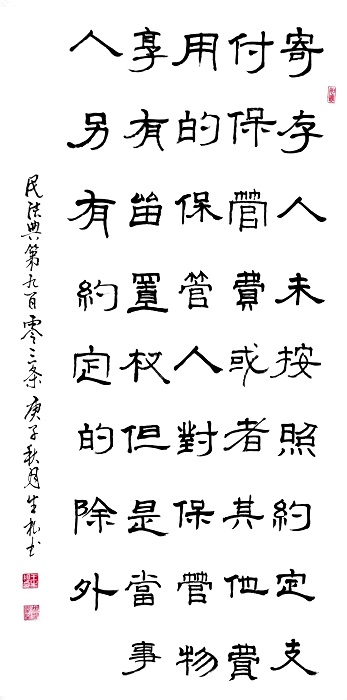 寄存人未按照約定支
付保管費或者其他費
用的保管人對保管物
享有留置权但是當事
人另有約定的除外
民法典第九百零三条 庚子秋月生书